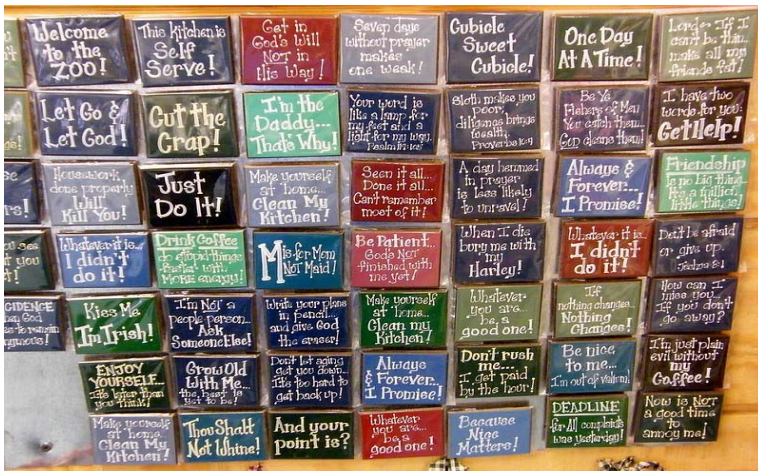 Welcome
to the
ZOO!
This Kitchen is
Self
Serve!
Get in
God's Will
NOT in
His Way!
Seven days
without prayer
makes
one weak!
Cubicle
Sweet
Cubicle!
One Day
At A Time!
Lord... If I
can't be thin...
make all my
friends fat!
Let Go &
Let God!
Cut the
Crap!
I'm the
Daddy...
That's Why!
Your word is
like a lamp for
my feet and a
light for my way.
Sloth makes you
poor,
diligence brings
wealth.
Be Ye
Fishers of Men
You catch them...
God cleans them!
I have two
words for you:
Get Help!
se
rs!
Housework...
done properly
Will
Kill You!
Just
Do It!
Make yourself
at home...
Clean My
Kitchen!
Seen it all...
Done it all...
Can't remember
most of it!
A day hemmed
in prayer
is less likely
to unravel!
Always &
Forever...
I Promise!
Friendship
is no big thing...
it's a million
little things!
Whatever it is...
I didn't
do it!
Drink Coffee
do stupid things
faster with
MORE energy!
M is for Mom
NOT Maid!
Be Patient...
God's NOT
finished with
me yet!
When I die
bury me with
my
Harley!
Whatever it is...
I didn't
do it!
Don't be afraid
or give up.
CIDENCE
Kiss Me
I'm Irish!
I'm NOT a
people person...
Ask
Someone Else!
Write your plans
in pencil...
and give God
the eraser!
Make yourself
at home...
Clean my
Kitchen!
Whatever
you are...
be a
good one!
If
nothing changes...
Nothing
Changes!
How can I
miss you...
If you don't
go away?
ENJOY
YOURSELF...
It's later than
you think!
Grow Old
With Me...
the best is
yet to be!
Don't let aging
get you down...
It's too hard to
get back up!
Always
& Forever...
I Promise!
Don't rush
me...
I get paid
by the hour!
Be nice
to me...
I'm out of valium!
I'm just plain
evil without
my
Coffee!
Make yourself
at home...
Clean My
Kitchen!
Thou Shalt
Not Whine!
And your
point is?
Whatever
you are...
be a
good one!
Because
Nice
Matters!
DEADLINE
for All complaints
was yesterday!
Now is NOT
a good time
to
annoy me!